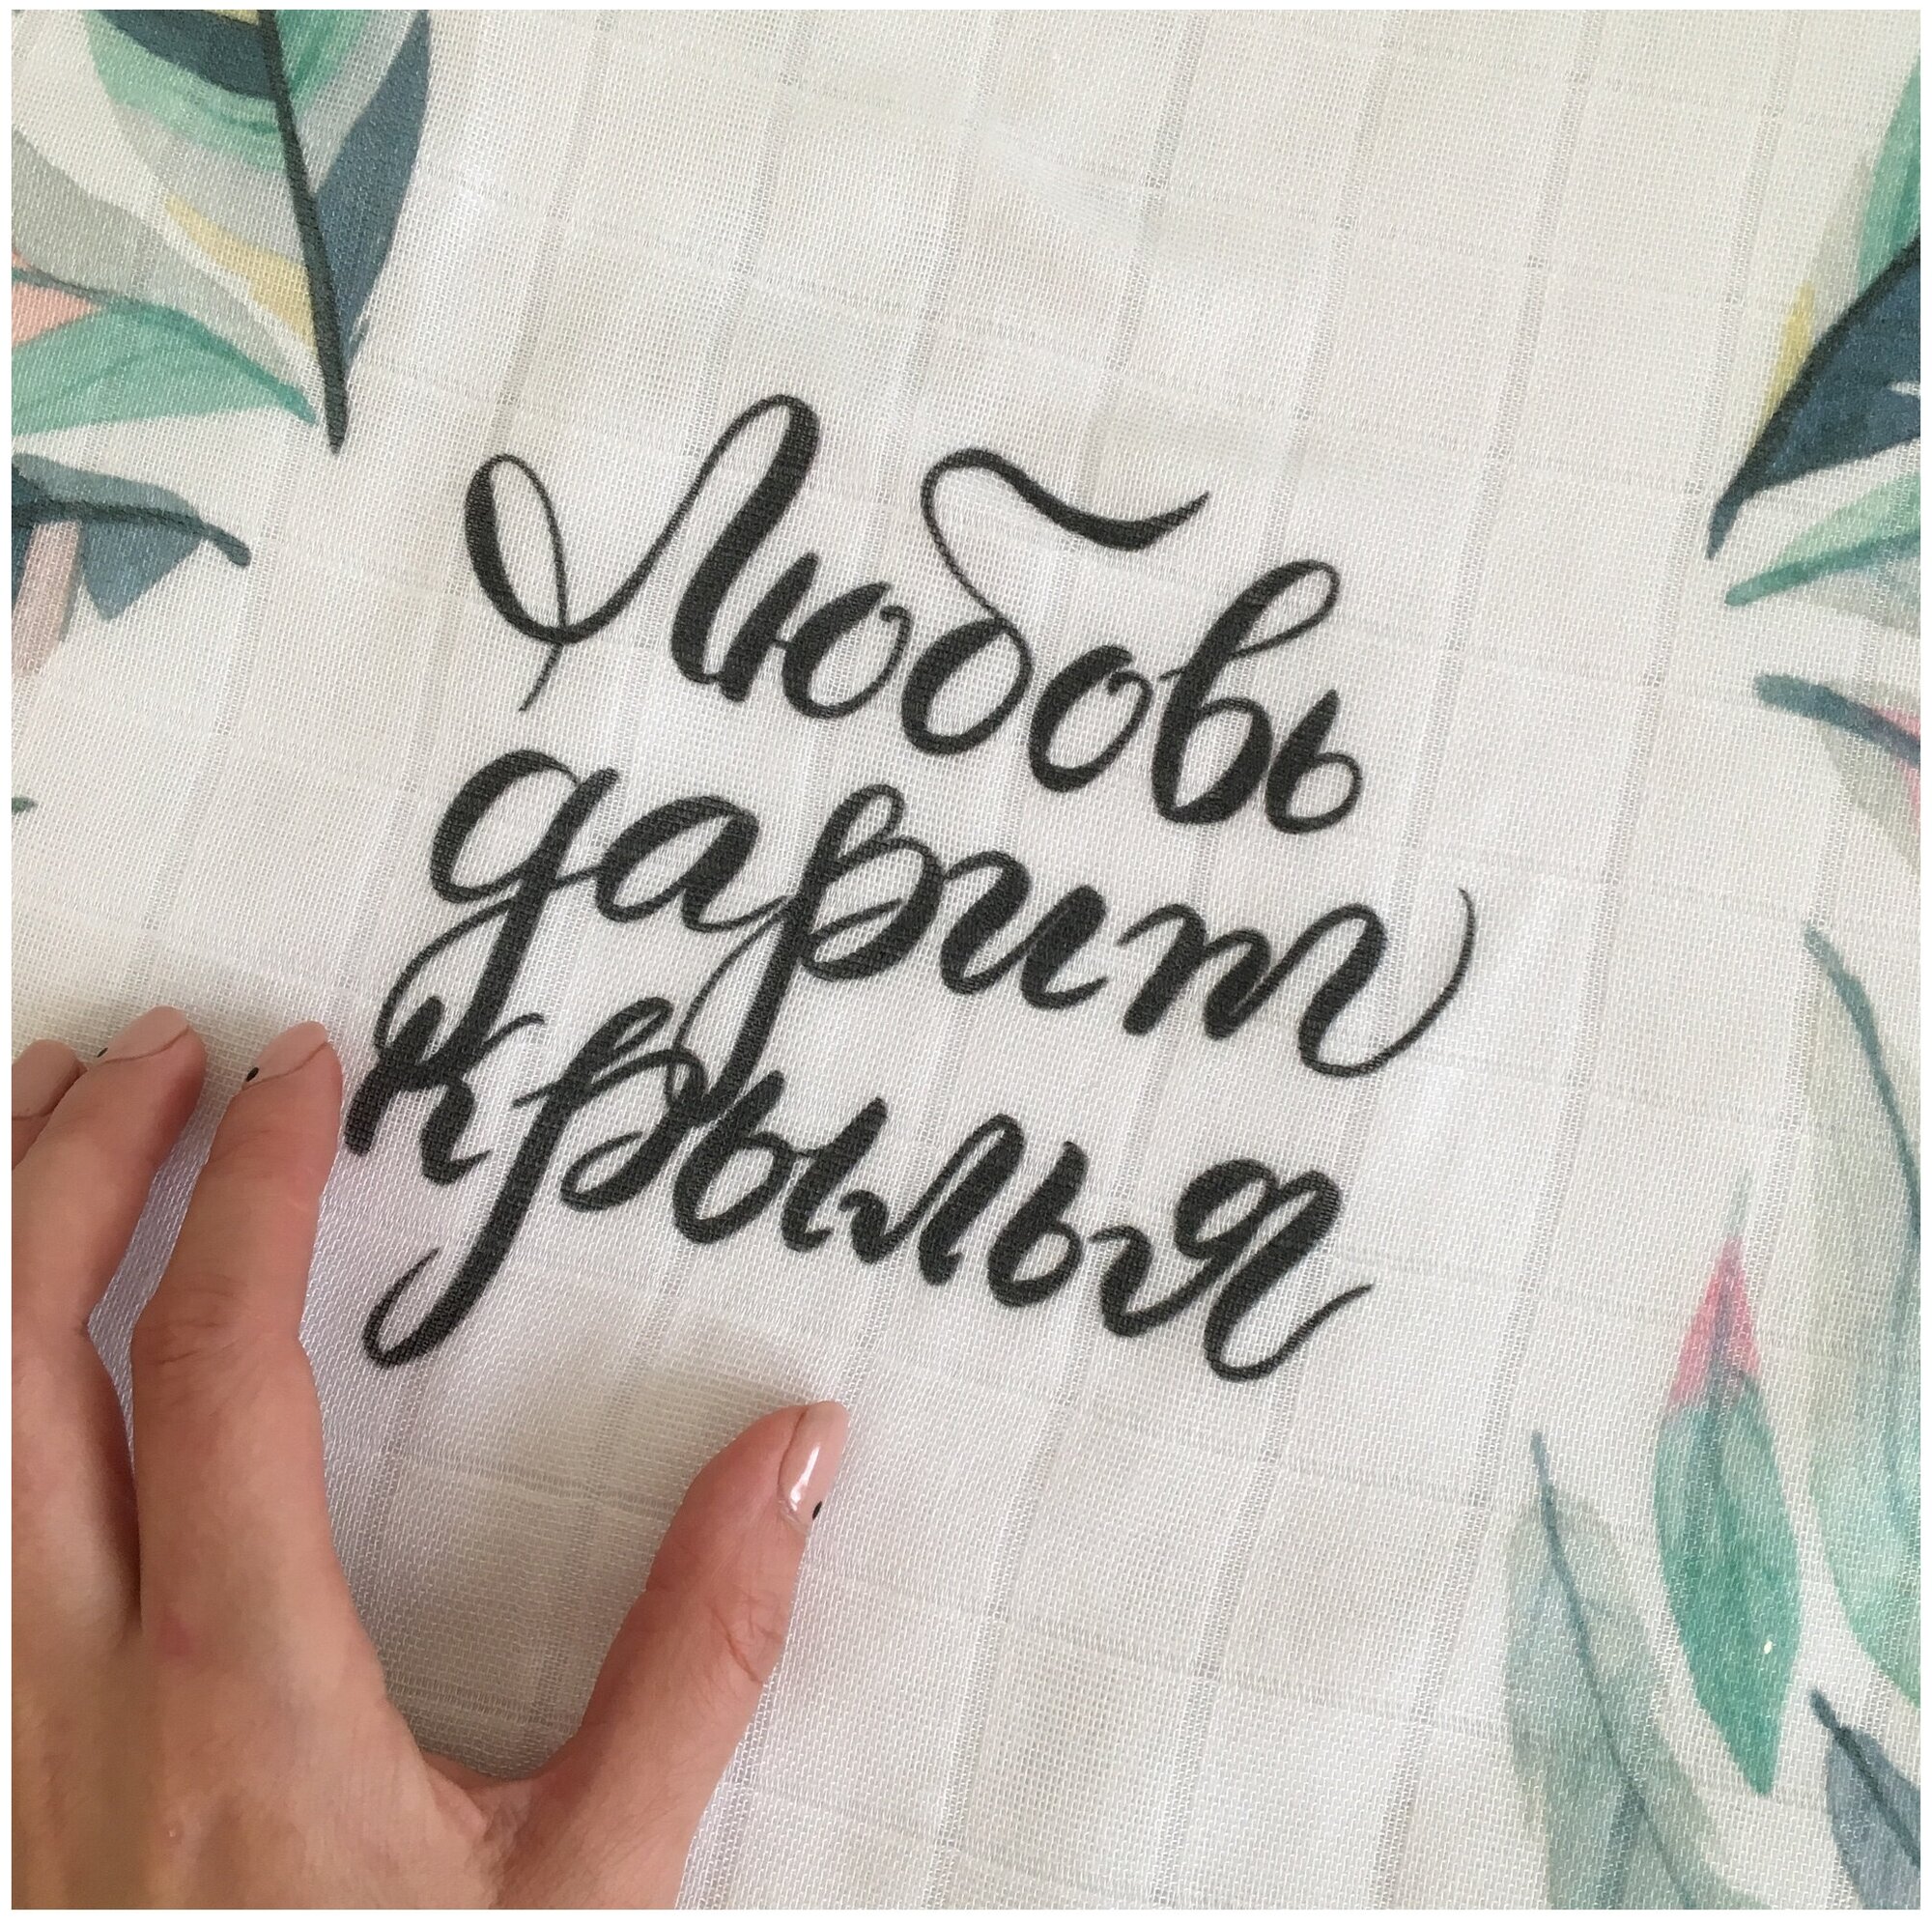 Любовь
дарит
крылья